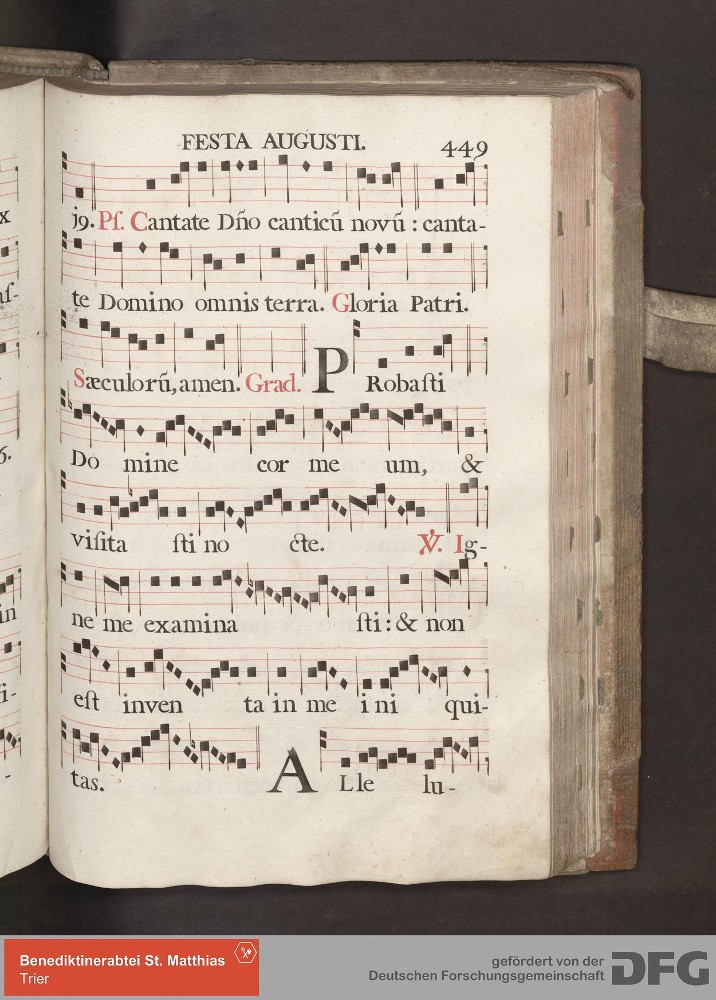 FESTA AUGUSTI. 449
j9. Pſ. Cantate Dño canticũ novũ : canta-
te Domino omnis terra. Gloria Patri.
Sæculorũ, amen. Grad. PRobaſti
Do mine cor me um, &
viſita ſti no cte. ℣. Ig-
ne me examina ſti : & non
eſt inven ta in me i ni qui-
tas. ALle lu-
x
aſ-
6.
in
ſi-
-
Benediktinerabtei St. Matthias
Trier
gefördert von der
Deutschen Forschungsgemeinschaft
DFG